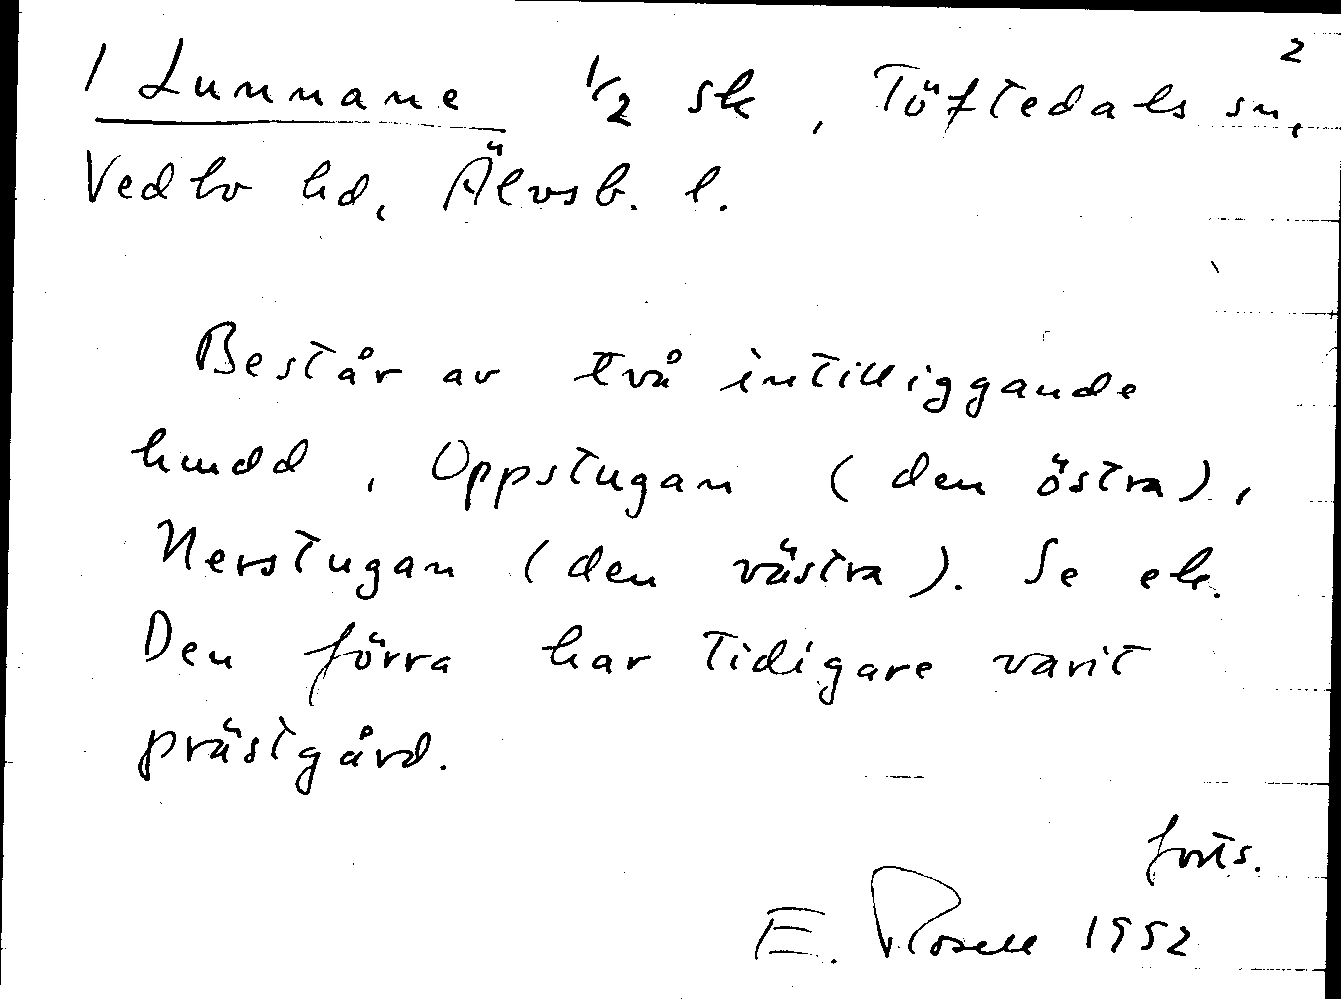 2
1 Lunnane 1/2 sk, Töftedals sn,
Vedbo hd, Älvsb. l.
Består av två intilliggande
hmdd, Oppstugan (den östra),
Nerstugan (den västra). Se ek.
Den förra har tidigare varit
prästgård.
forts.
E. Rosell 1952